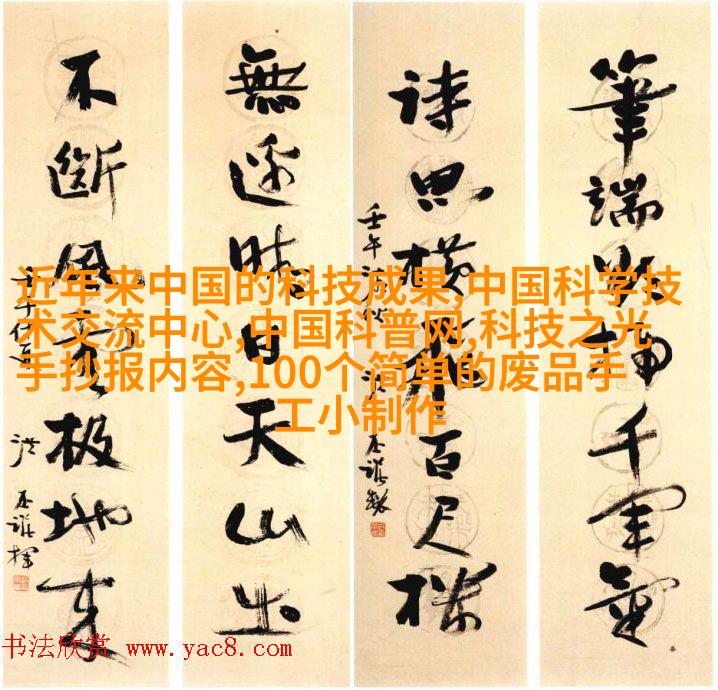 筆端掃千軍氣
詩思橫飛百尺樓
無邊晴日天山出
不斷風雲極地來
洪丕謨揮
近年来中国的科技成果,中国科学技
术交流中心,中国科普网,科技之光
手抄报内容,100个简单的废品手
工小制作
书法欣赏 www.yac8.com